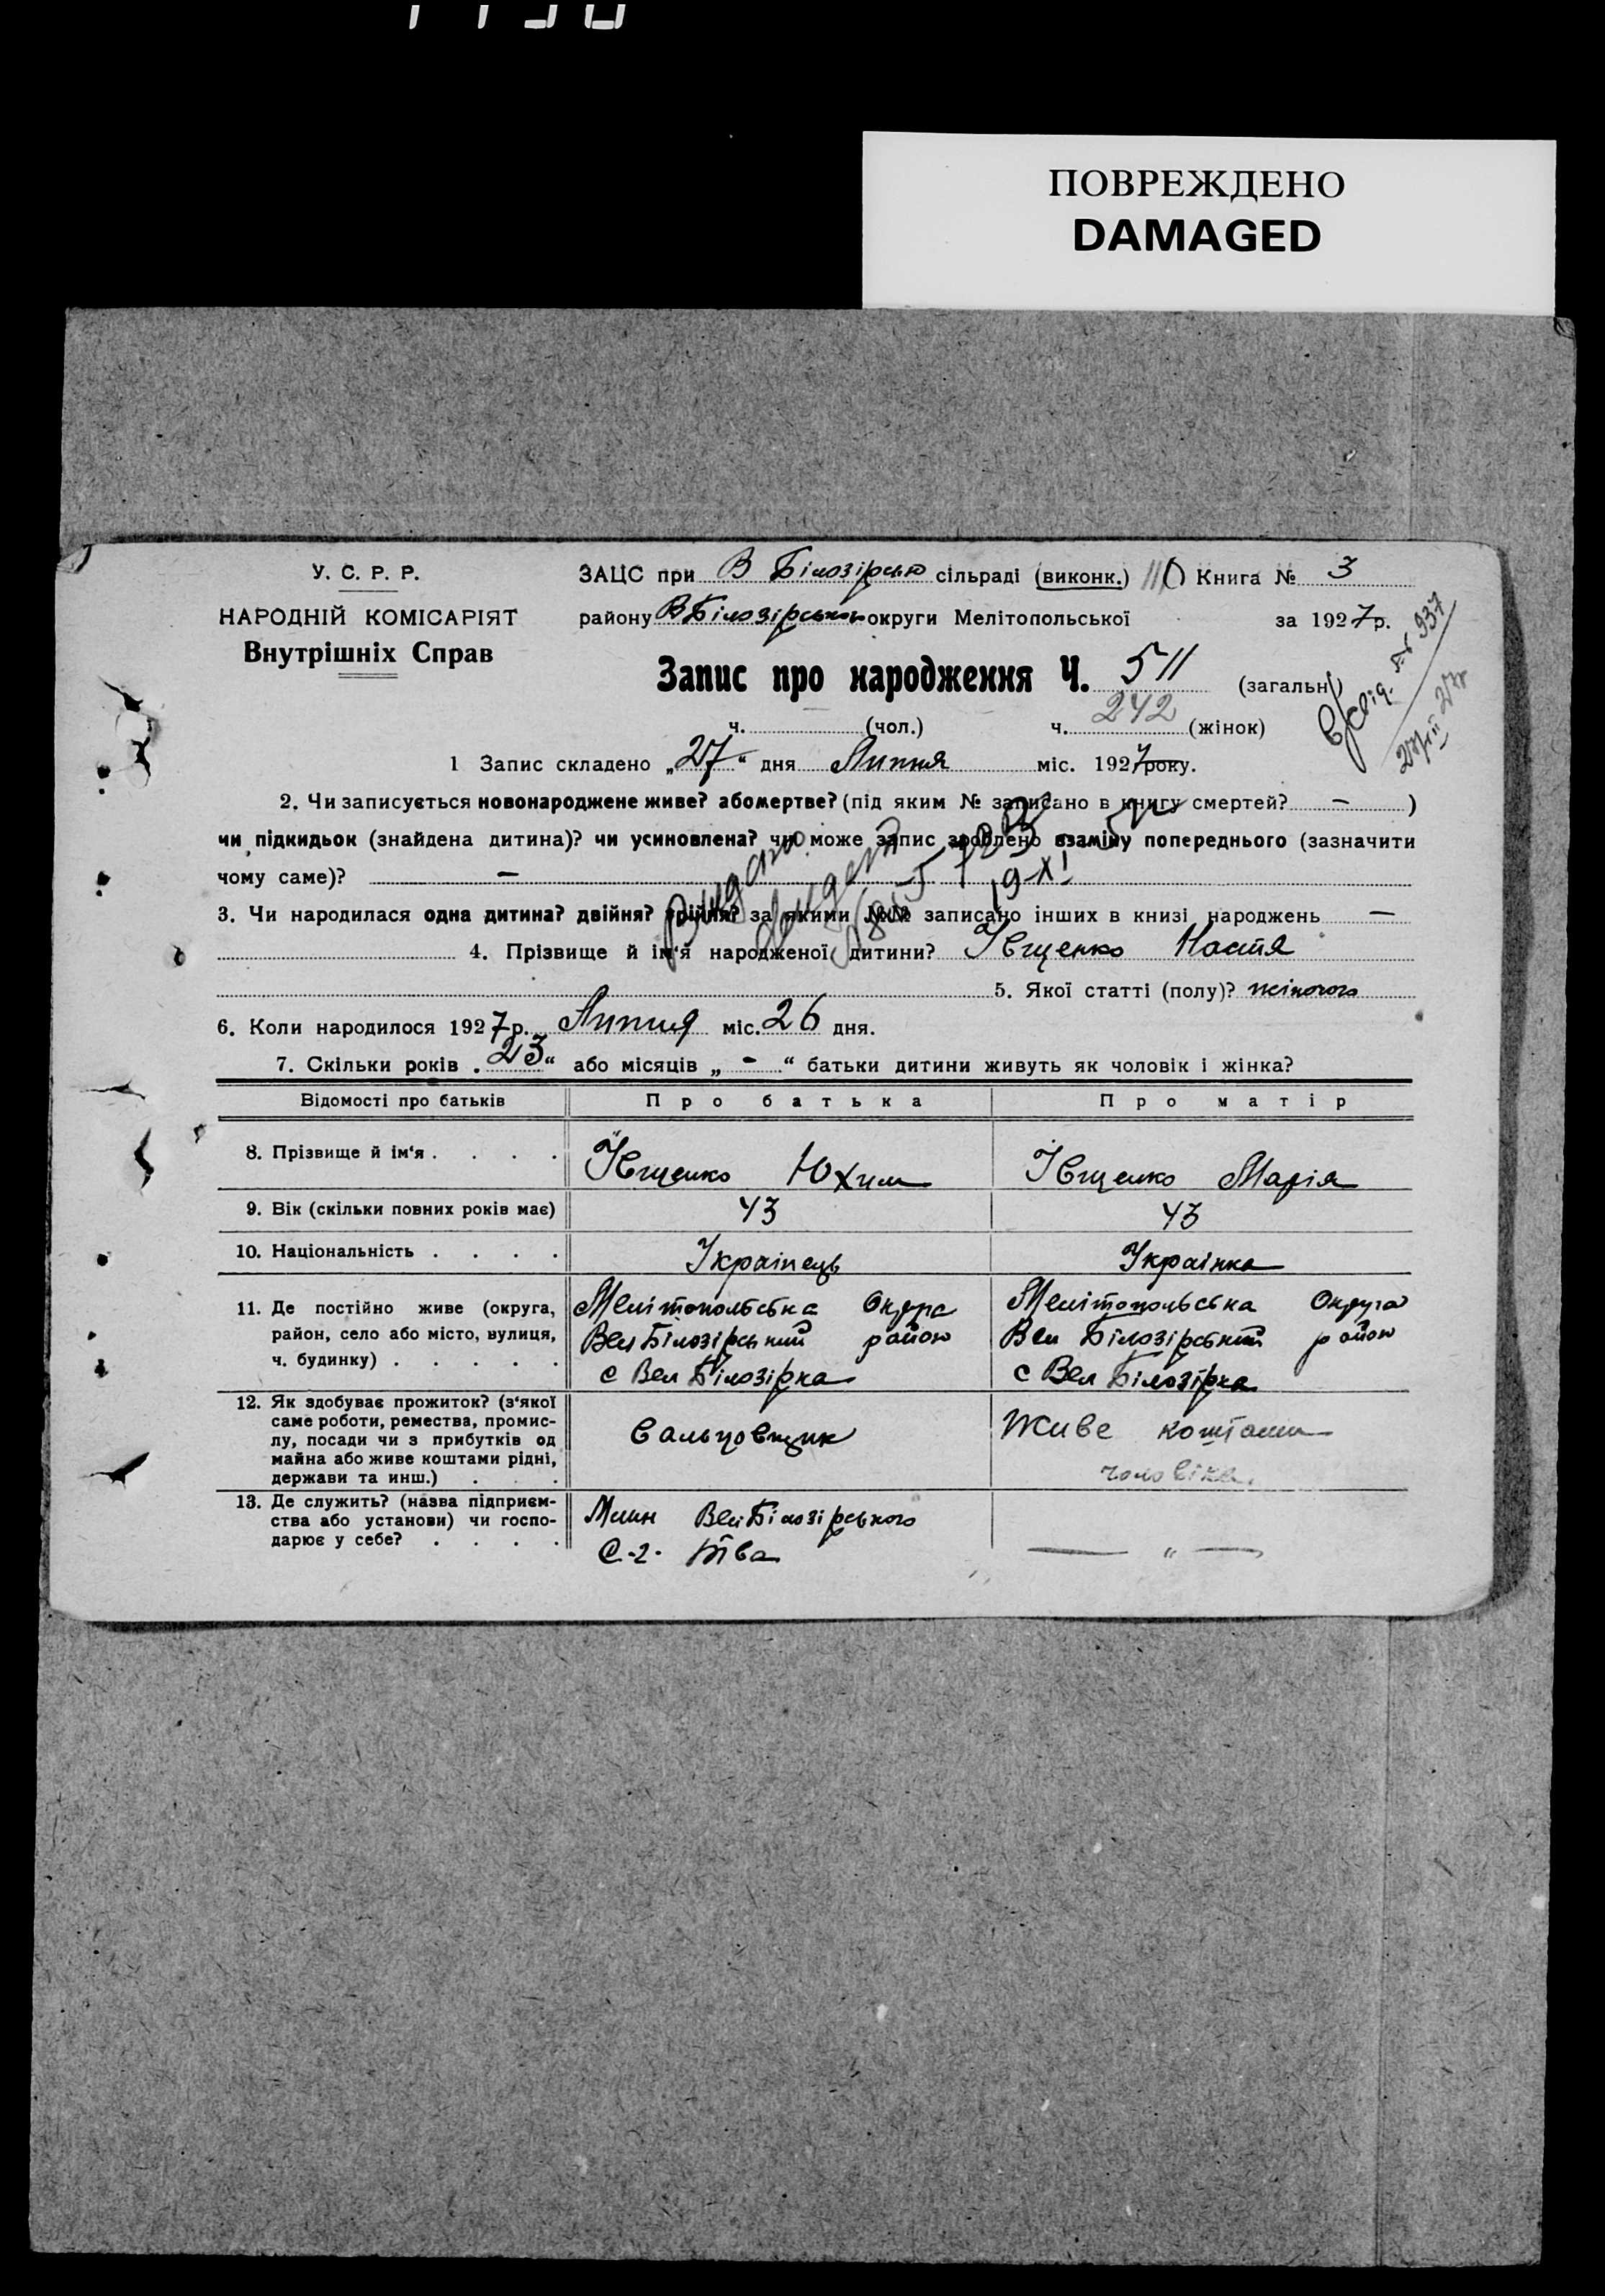 ПОВРЕЖДЕНО
DAMAGED
У. С. Р. Р.
НАРОДНІЙ КОМІСАРІЯТ
Внутрішніх Справ
ЗАЦС при В Білозірськ сільраді (виконк.) Книга № 3
району ВБілозірськ округи Мелітопольської за 1927р.
Запис про народження Ч. 511 (загальн.)
ч. (чол.) ч. 242 (жінок)
1 Запис складено „27“ дня Липня міс. 1927 року.
2. Чи записується новонароджене живе? або мертве? (під яким № записано в книгу смертей? — )
чи підкидьок (знайдена дитина)? чи усиновлена? чи може запис зроблено взаміну попереднього (зазначити
чому саме)? —
3. Чи народилася одна дитина? двійня? трійня? за якими №№ записано інших в книзі народжень —
4. Прізвище й ім'я народженої дитини? Івщенко Настя
5. Якої статті (полу)? жіночого
6. Коли народилося 1927р. Липня міс. 26 дня.
7. Скільки років „23“ або місяців „ - “ батьки дитини живуть як чоловік і жінка?
Відомості про батьків Про батька Про матір
8. Прізвище й ім'я . . . . Івщенко Юхим Івщенко Марія
9. Вік (скільки повних років має) 43 43
10. Національність . . . . Українець Українка
11. Де постійно живе (округа, Мелітопольська Округа Мелітопольська Округа
район, село або місто, вулиця, Вел Білозірський район Вел Білозірський район
ч. будинку) . . . . . с Вел Білозірка с Вел Білозірка
12. Як здобуває прожиток? (з'якої
саме роботи, ремества, промис-
лу, посади чи з прибутків од Вальцовщик Живе коштами
майна або живе коштами рідні,
держави та инш.) . . . чоловіка.
13. Де служить? (назва підприєм- Млин Вел Білозірського
ства або установи) чи госпо-
дарює у себе? . . . . С.-г. Т-ва — „ —